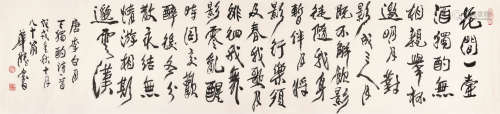 花間一壺
酒獨酌無
相親舉杯
邀明月對
影成三人月
既不解飲影
徒隨我身
暫伴月將
影行樂須
及春我歌月
徘徊我舞
影零亂醒
時同交歡
醉後各分
散永結無
情遊相期
邈雲漢
唐李白月
下獨酌詩
戊戌年秋十月
八十翁